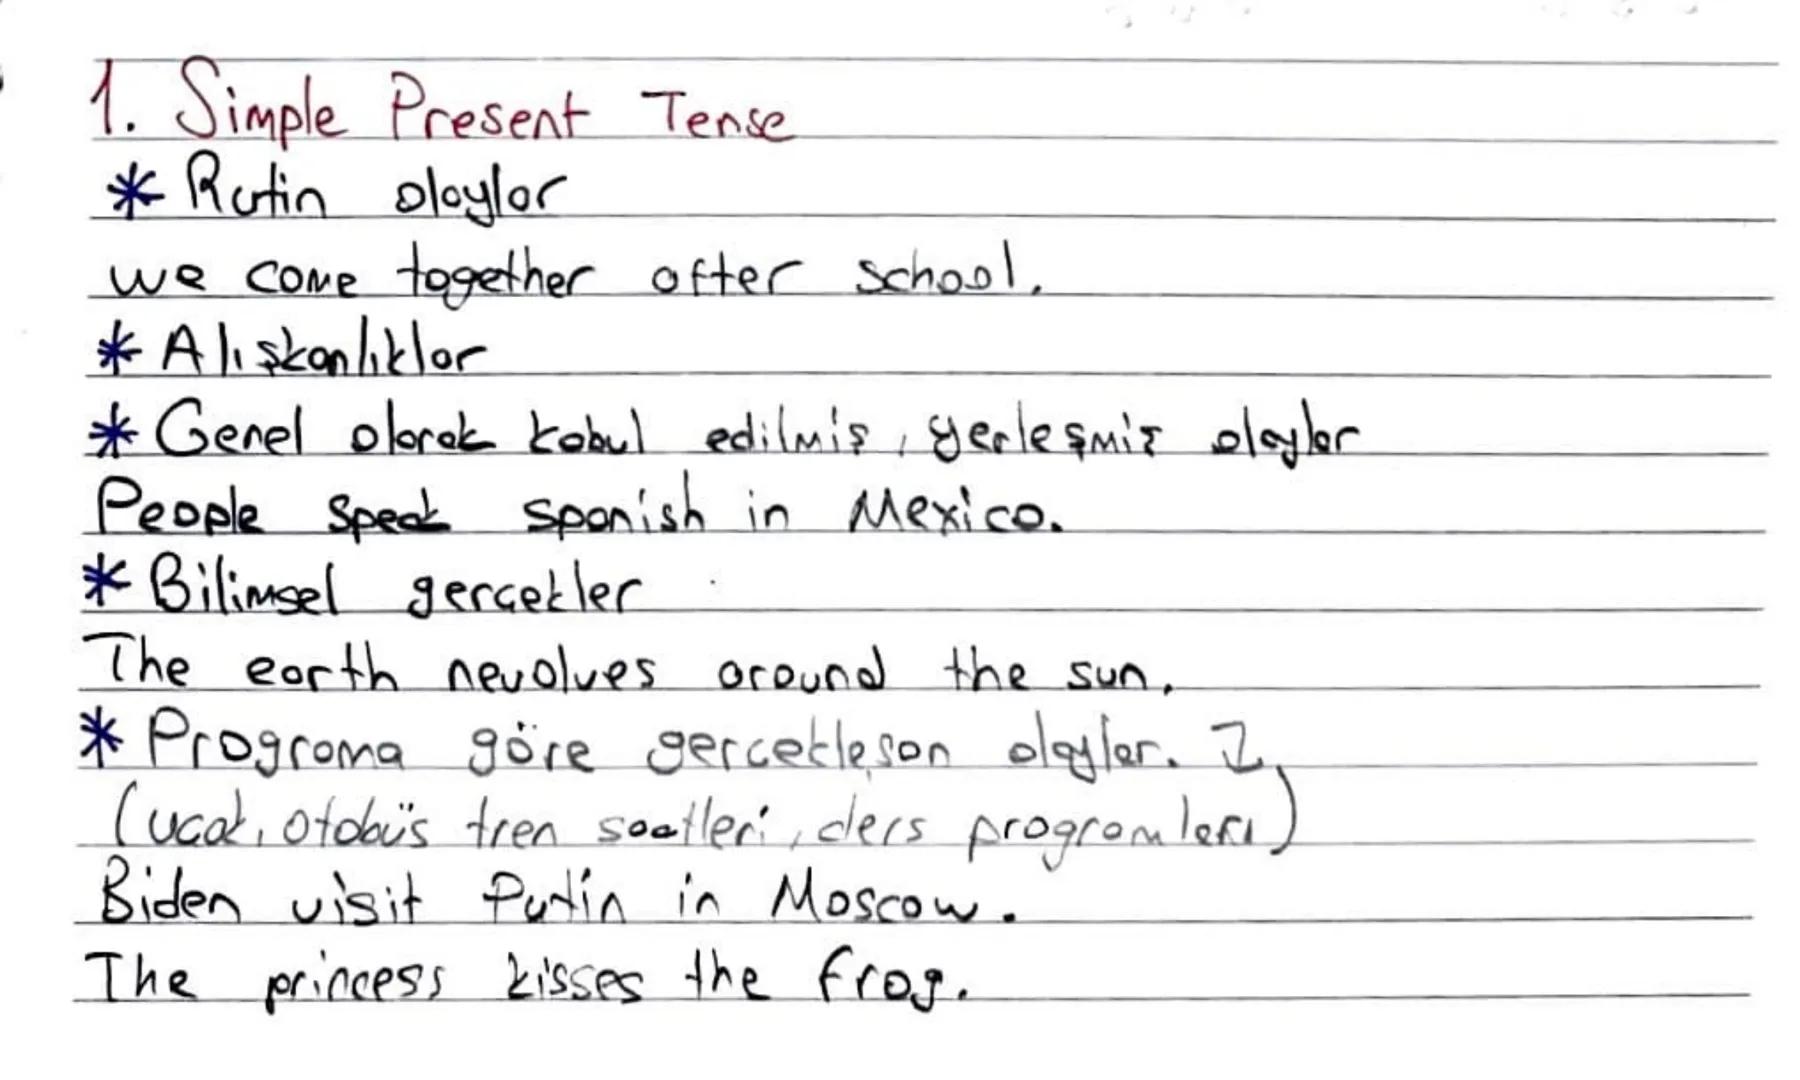 1. Simple Present Tense
* Rutin olaylar
we come together after school.
* Alışkanlıklar
* Genel olarak kabul edilmiş, yerleşmiş olaylar
People speak spanish in Mexico.
* Bilimsel gerçekler
The earth revolves around the sun.
* Programa göre gerçekleşen olaylar. ↓
(uçak, otobüs tren saatleri, ders programları)
Biden visit Putin in Moscow.
The princess kisses the frog.